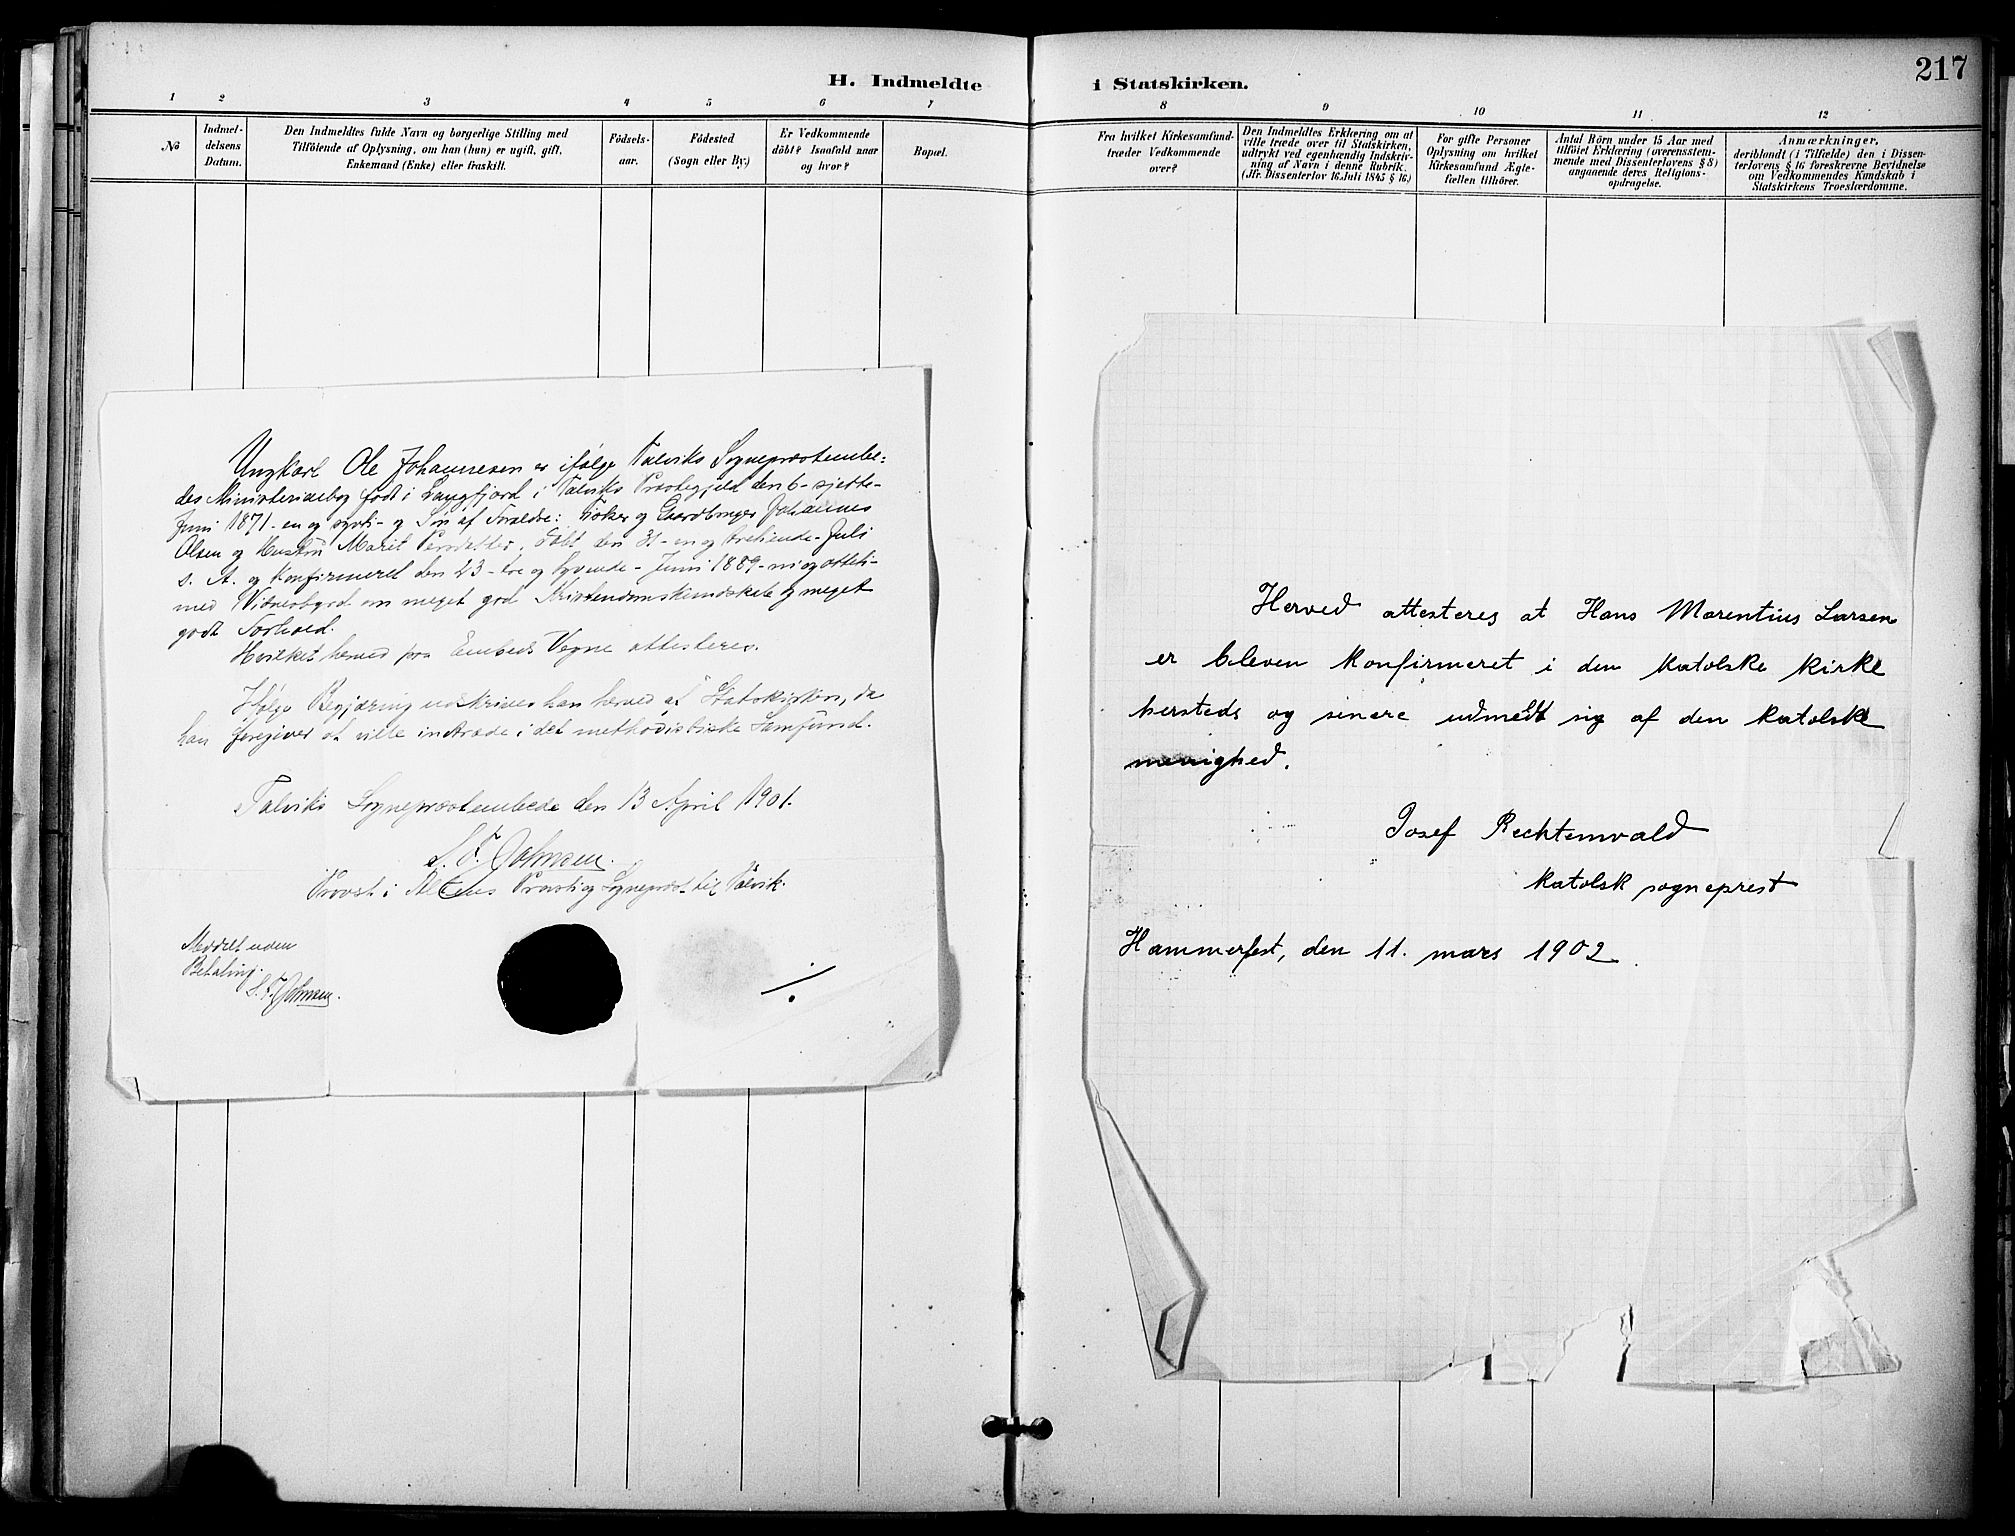 217
H. Indmeldte i Statskirken.
1 2 3 4 5 6 7 8 9 10 11 12
No
Indmel-
delsens
Datum.
Den Indmeldtes fulde Navn og borgerlige Stilling med
Tilföiende af Oplysning, om han (hun) er ugift, gift,
Enkemand (Enke) eller fraskilt.
Födsels-
aar.
Födested
(Sogn eller By.)
Er Vedkommende
döbt? Isaafald naar
og hvor?
Bopæl.
Fra hvilket Kirkesamfund
træder Vedkommende
over?
Den Indmeldtes Erklæring om at
ville træde over til Statskirken,
udtrykt ved egenhændig Indskriv-
ning af Navn i denne Rubrik.
(Jfr. Dissenterlov 16. Juli 1845 § 16.)
For gifte Personer
Oplysning om hvilket
Kirkesamfund Ægte-
fællen tilhörer.
Antal Börn under 15 Aar med
tilföiet Erklæring (overensstem-
mende med Dissenterlovens § 8)
angaaende deres Religions-
opdragelse.
Anmærkninger,
deriblandt (i Tilfælde) den i Dissen-
terlovens § 16 foreskrevne Bevidnelse
om Vedkommendes Kundskab i
Statskirkens Troeslærdomme.
Ungkarl Ole Johannesen er ifølge Talviks Sognepræstembe=
des Ministerialbog født i Langfjord i Talviks Præstegjeld den 6- sjette-
Juni 1871- en og sytti- og Søn af Forældre: Fisker og Gaardbruger Johannes
Olsen og Hustru Marit Persdatter, døbt den 31- en og tretiende- Juli
s. A. og konfirmeret den 23- tre og tyvende- Juni 1889- ni og otteti-
med Vidnesbyrd om meget god Kristendomskundskab og meget
godt Forhold.
Hvilket herved paa Embeds Vegne attesteres.
Ifølge Begjæring udskrives han herved af Statskirken, da
han foregiver at ville indtræde i det methodistiske Samfund.
Talviks Sognepræstembede den 13 April 1901.
S. F. Johnsen.
Provst i Altens Provsti og Sognepræst til Talvik.
Meddelt uden
Betaling.
S. F. Johnsen.
Herved attesteres at Hans Marentius Larsen
er bleven konfirmeret i den katolske kirke
hersteds og senere udmeldt sig af den katolske
menighed.
Josef Rechtenwald
katolsk sogneprest
Hammerfest, den 11. mars 1902.